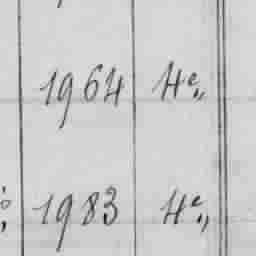 1964 He,,
1983 He,,